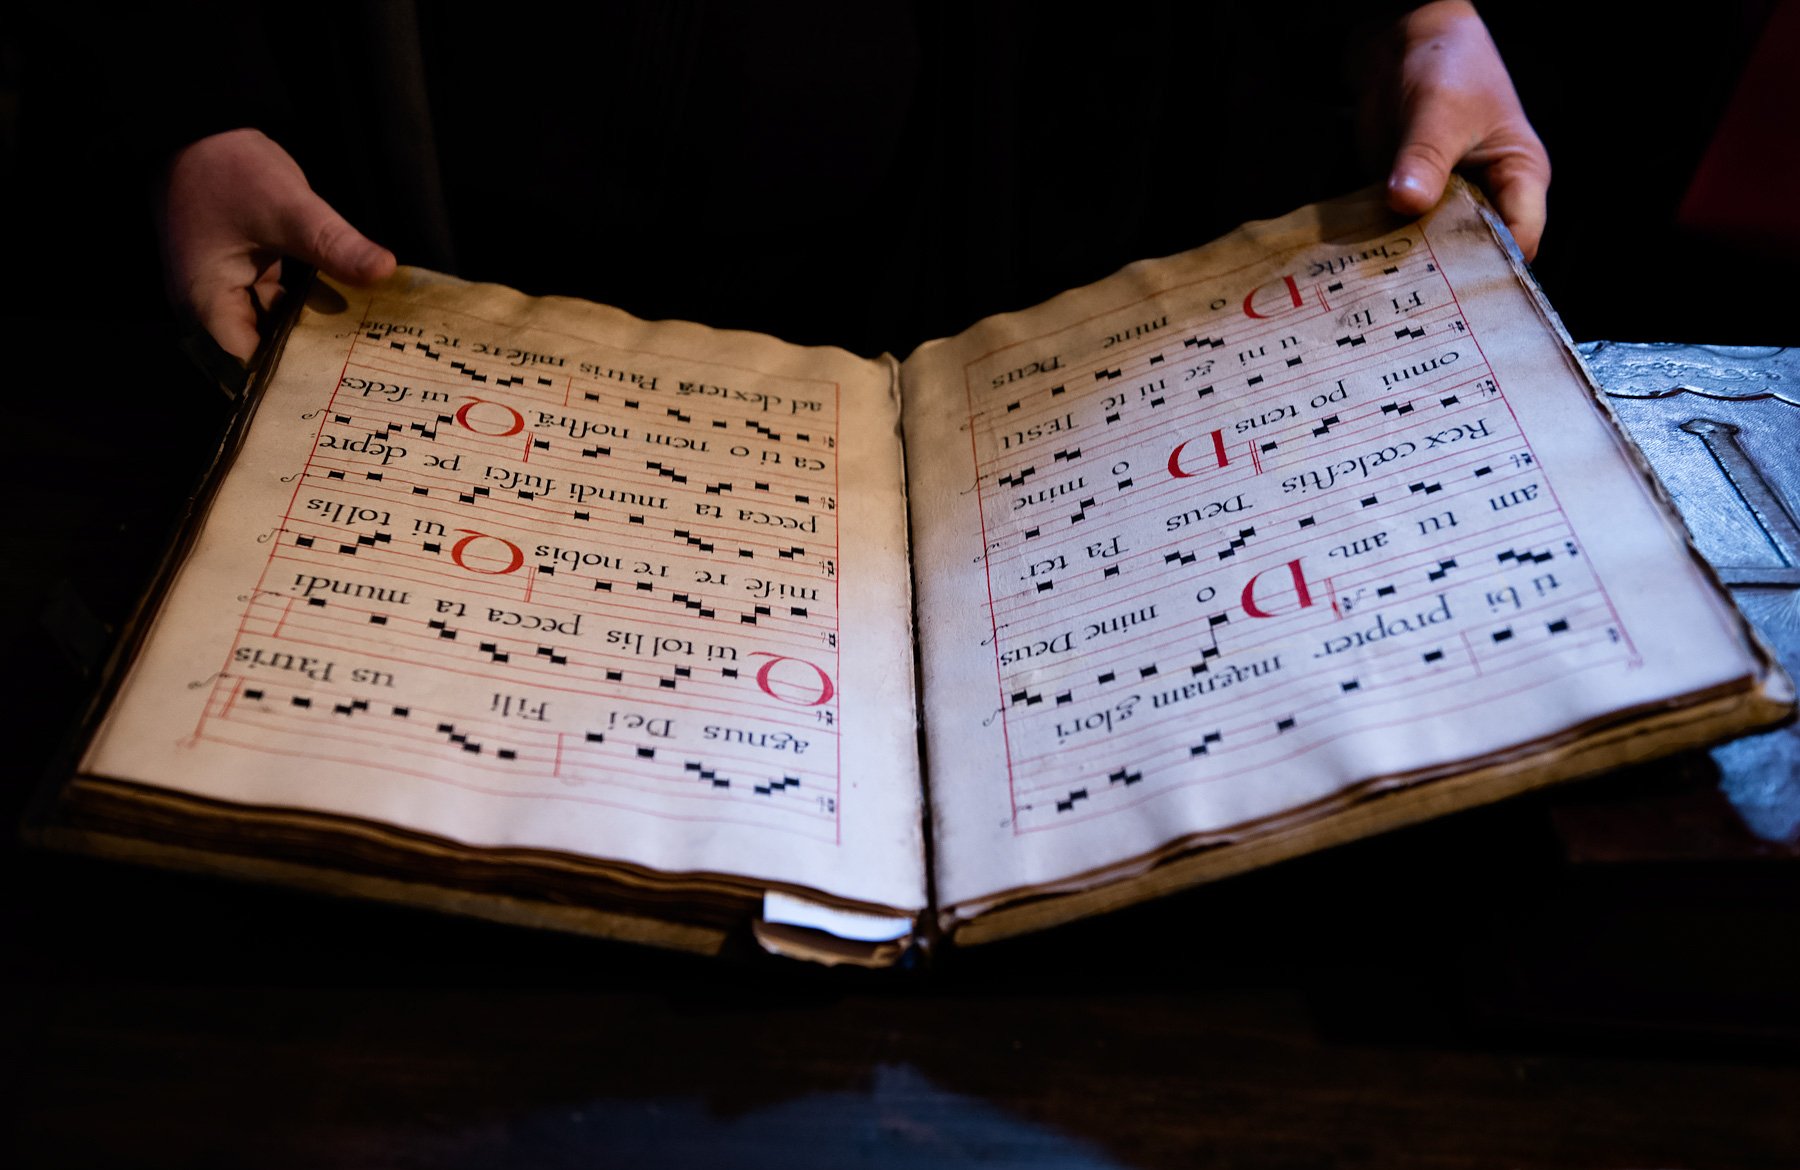 ti bi propter magnam glori
am tu am. D o mine Deus
Rex cœleſtis Deus Pa ter
omni po tens D o mine
Fi li u ni ge ni te IESU
Chriſte D o mine Deus
agnus Dei Fili us Patris
Q ui tol lis pecca ta mundi
miſe re re nobis Q ui tollis
pecca ta mundi ſuſci pe depre
ca ti o nem noſtrã. Q ui ſedes
ad dexterã Patris miſere re nobis